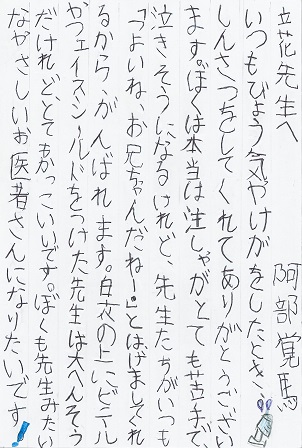 立花先生へ
阿部覚馬
いつもびょう気やけがをしたとき、
しんさつをしてくれてありがとうござい
ます。ぼくは本当は注しゃがとても苦手で
泣きそうになるけれど、先生たちがいつも
「つよいね、お兄ちゃんだねー。」とはげましてくれ
るから、がんばれます。白衣の上にビニール
かフェイスシールドをつけた先生は大へんそう
だけれど、とてもかっこいいです。ぼくも先生みたい
なやさしいお医者さんになりたいです!